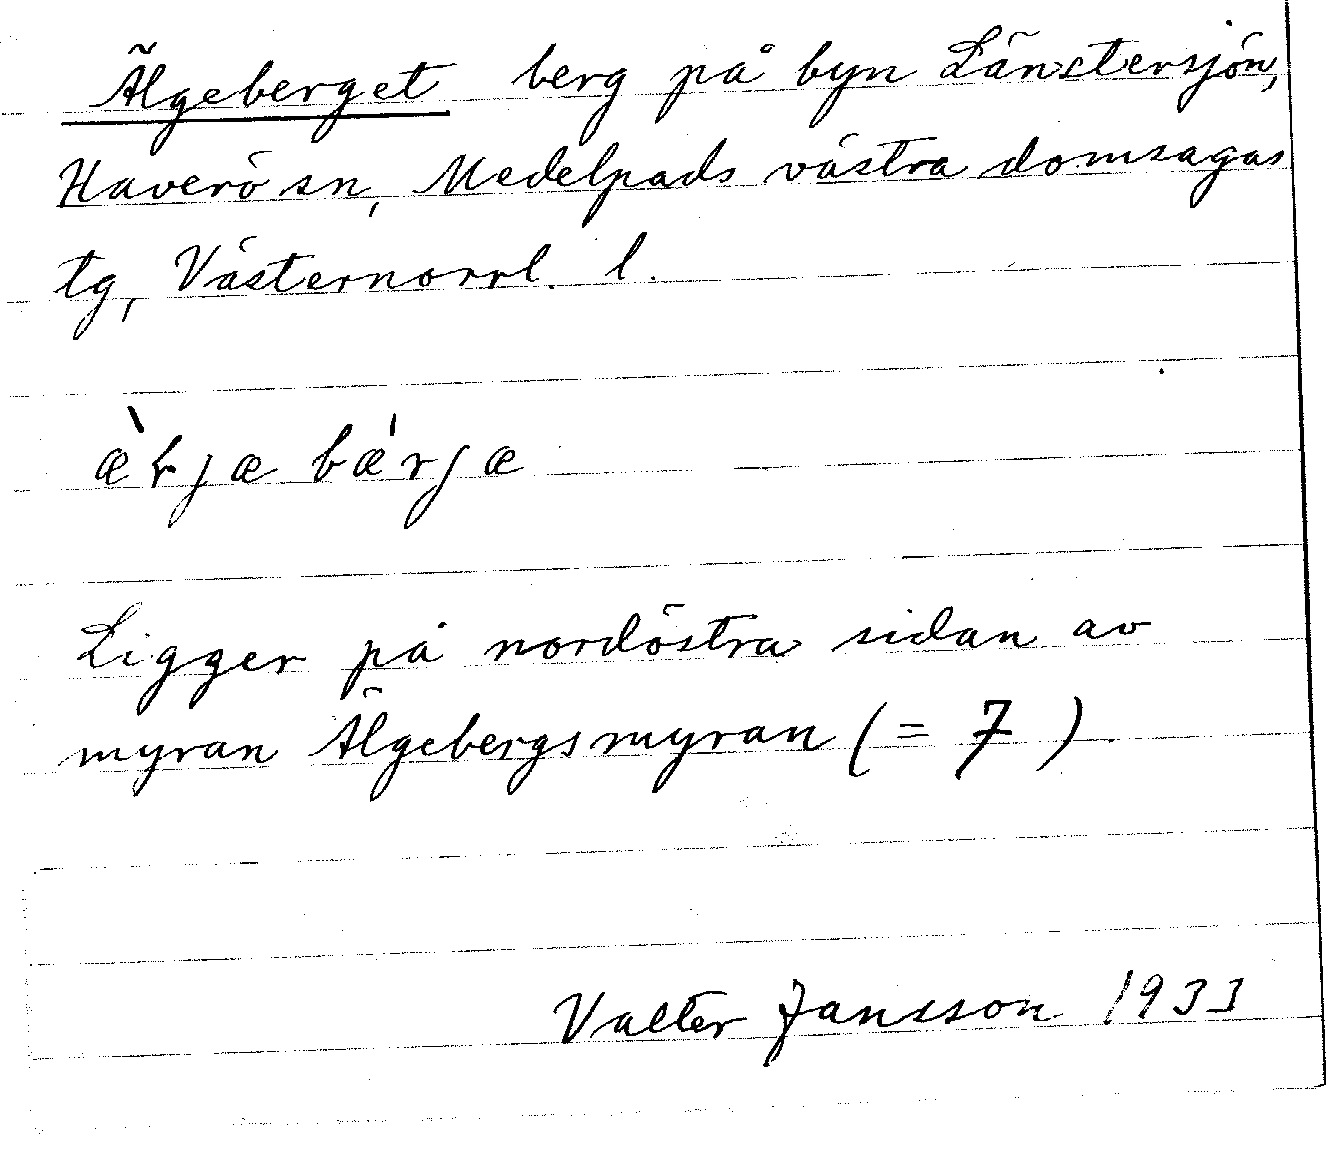 Älgeberget berg på byn Länstersjön,
Haverö sn, Medelpads västra domsagas
tg, Västernorrl. l.
æ̀ɽjæ bǽrjæ
Ligger på nordöstra sidan av
myran Älgebergsmyran (= 7)
Valter Jansson 1933